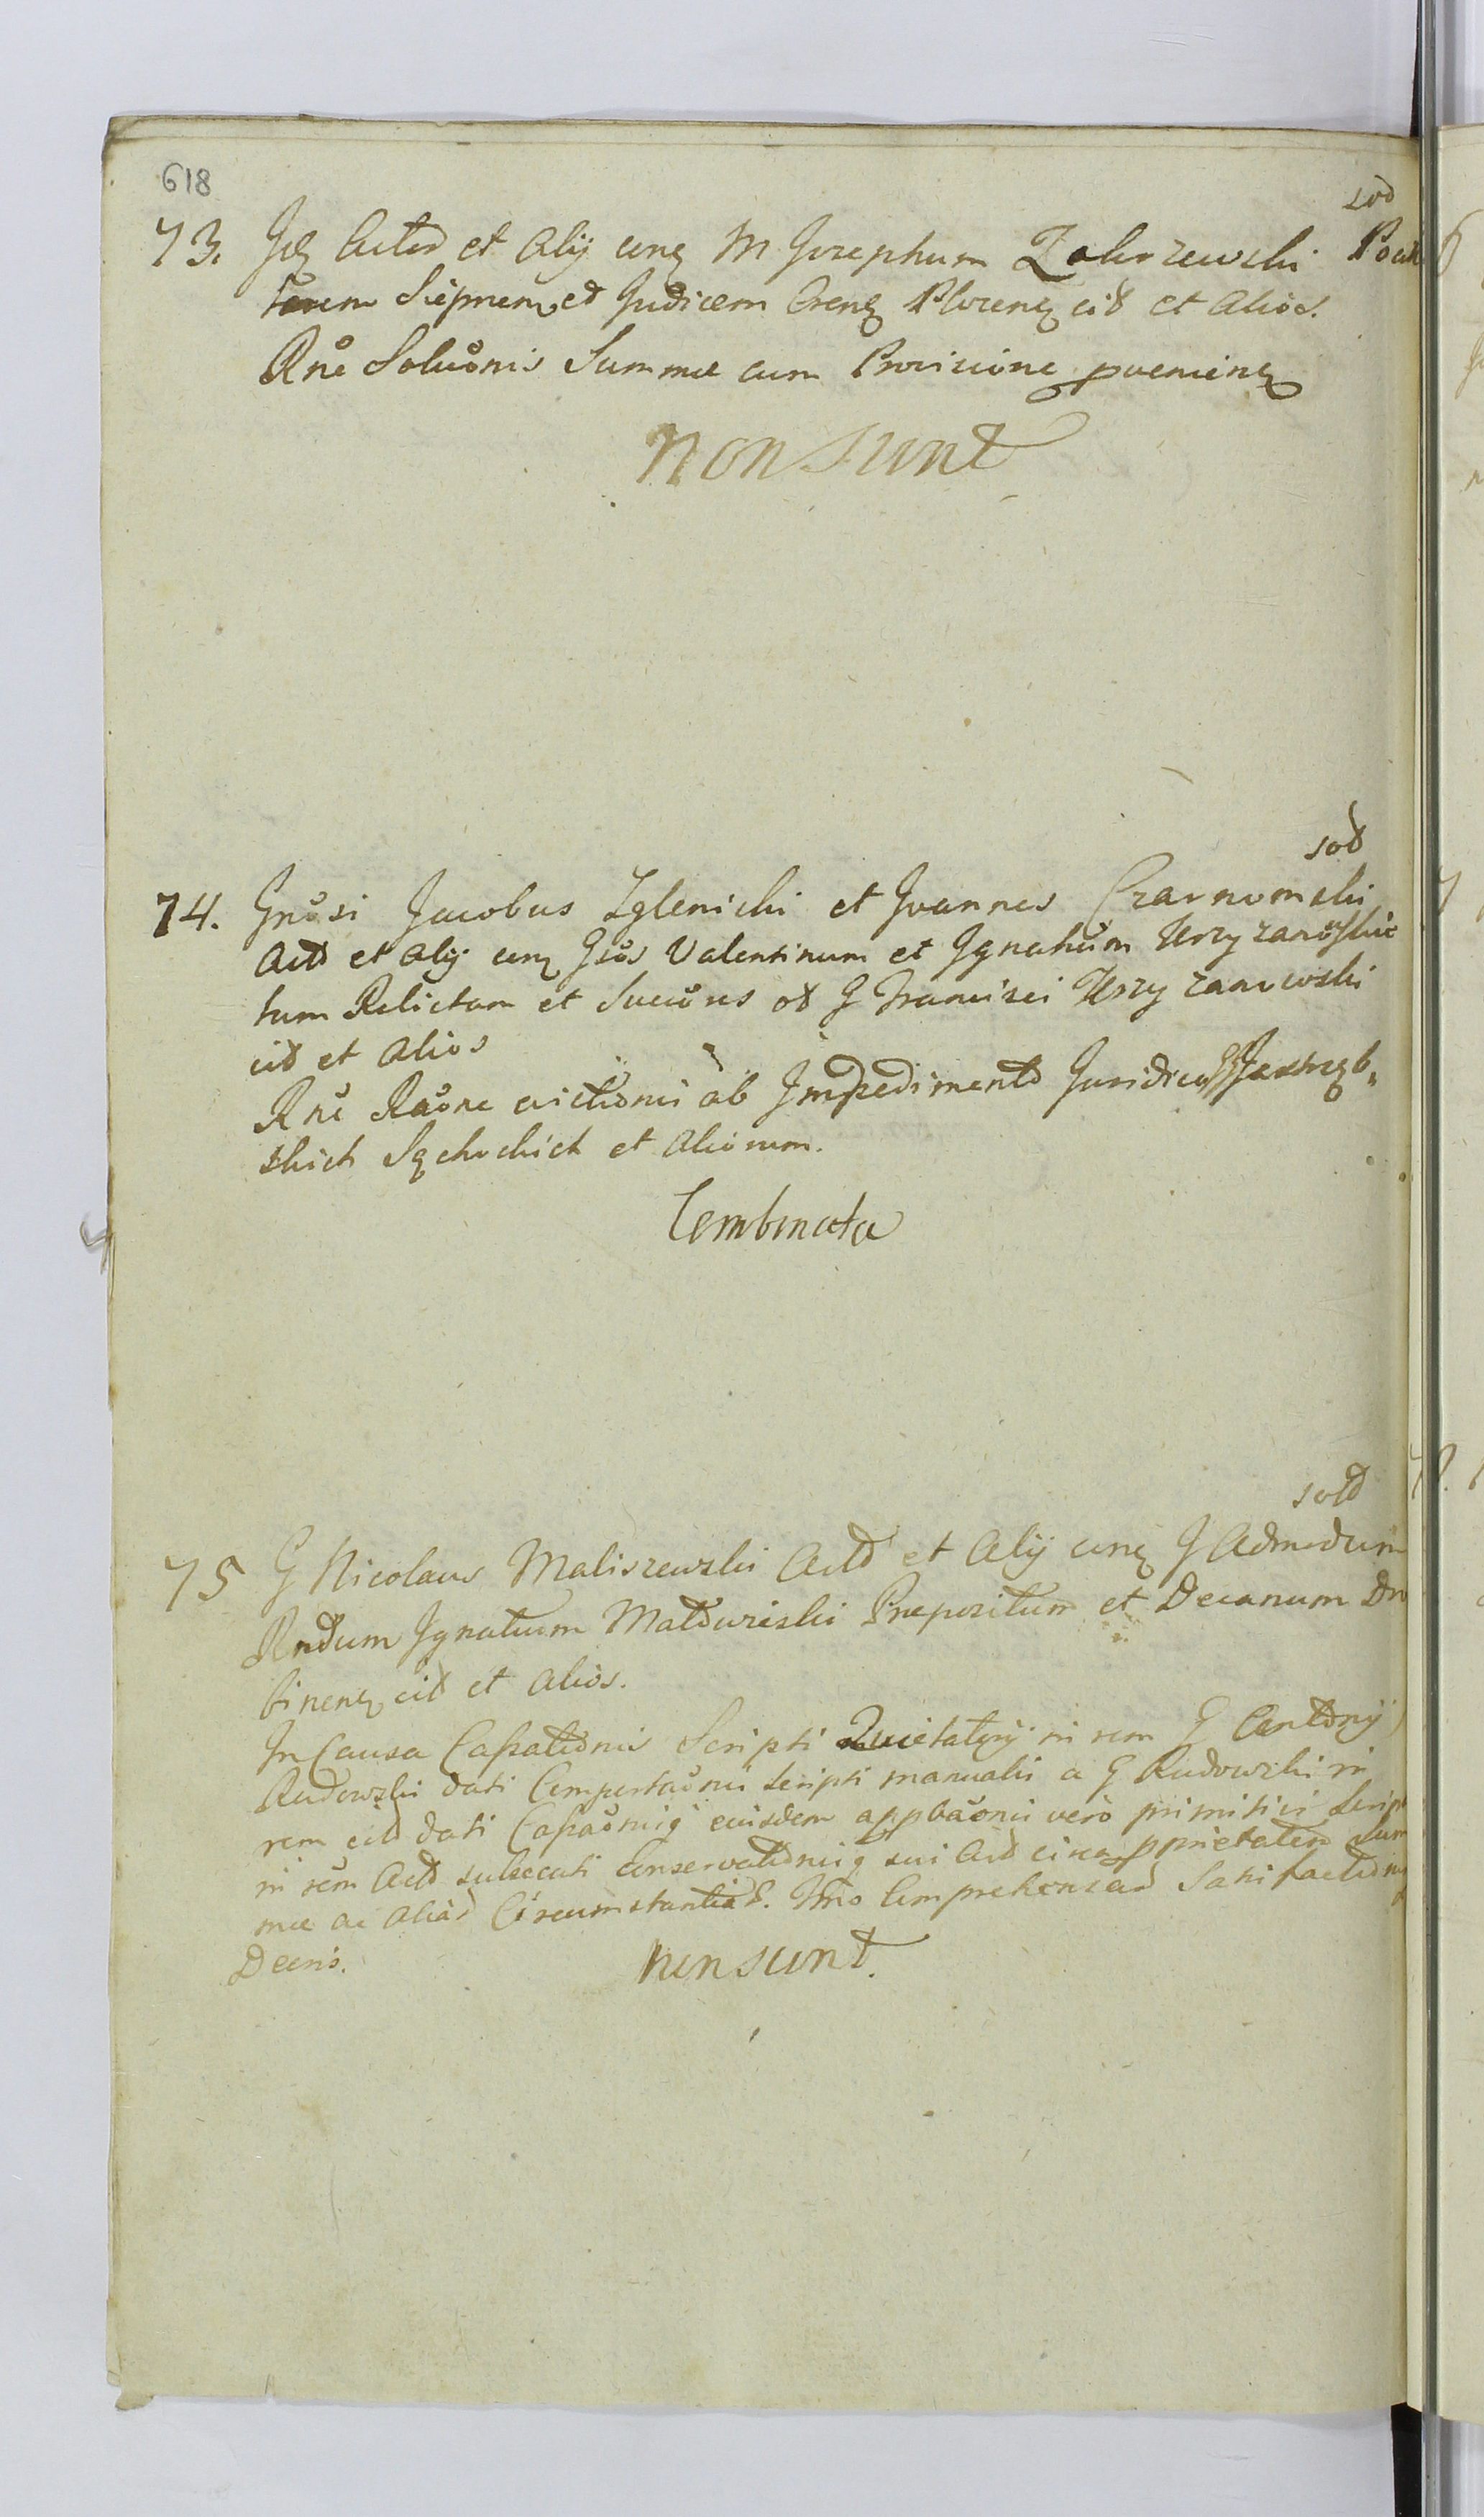 618
sod
73. Idq Actor et Alij conq M Josephum Zakrzewski Pocil
latorem Siepnenq et Judicem Crenq Plocenq citt et Alios.
Rne Soluonis Summae cum Provisione proveniendq
Non sunt
sod
74. Gnosi Jacobus Zglenicki et Joannes Czarnomski
Act et Alij conq Gsos Valentinum et Ignatium
tum Relictam et Succores ol G Francisci
cit et Alios
Rne Raone evictionis ab Impedimento Juridico GG Jastrzęb,
skich et Aliorum.
Combinata
sold
75 G Nicolaus Maliszewski Act et Alij conq G Admodum
Rndum Ignatium Praepositum et Decanum Do
brinenq cit et Alios.
In Causa Cassationis Scripti Quietatorij in rem G Antonij
Rudowski dati Comportaonis Scripti manualis a G Rudowski in
rem cit dati Cassaonisq eiusdem appbaonis vero primitivi Script
in rem Act subsecuti Conservationisq sui Act circa pprietatem Sum
mae ac alias Circumstantias. Imo Comprehensas Satisfactionis
Decris.
Non sunt.